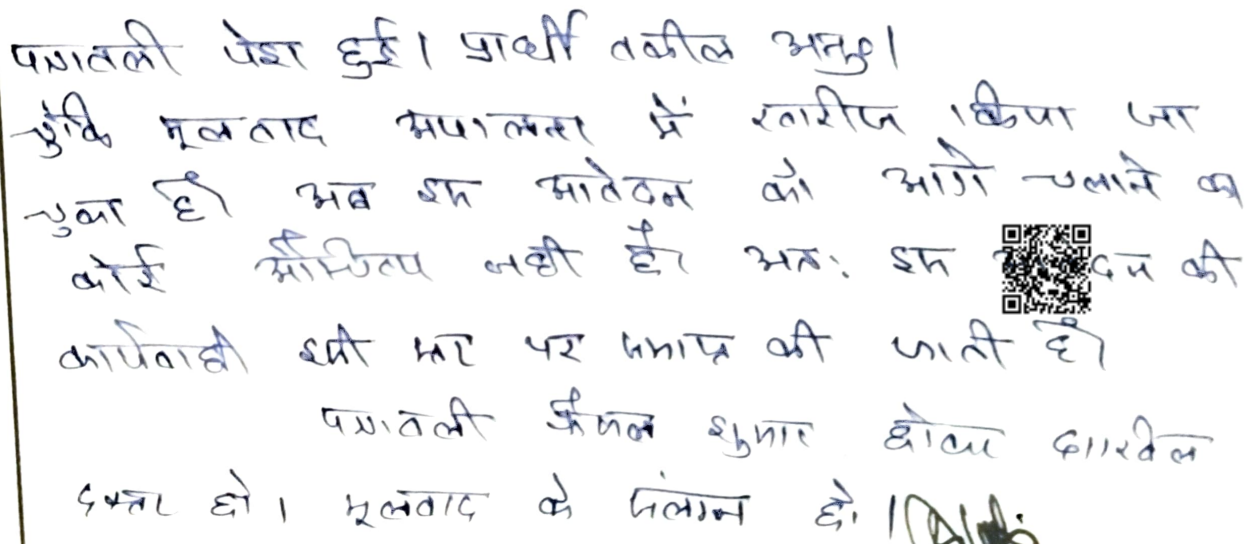 पत्रावली पेश हुई। प्रार्थी वकील अनु०।
चूंकि मूलवाद अदालत में खारीज किया जा
चुका है। अब इस आवेदन को आगे चलाने का
कोई औचित्य नहीं है। अतः इस की
कार्यवाही इसी स्तर पर समाप्त की जाती है।
पत्रावली फैसल शुमार होकर दाखिल
दफ्तर हो। मूलवाद के संलग्न हो।